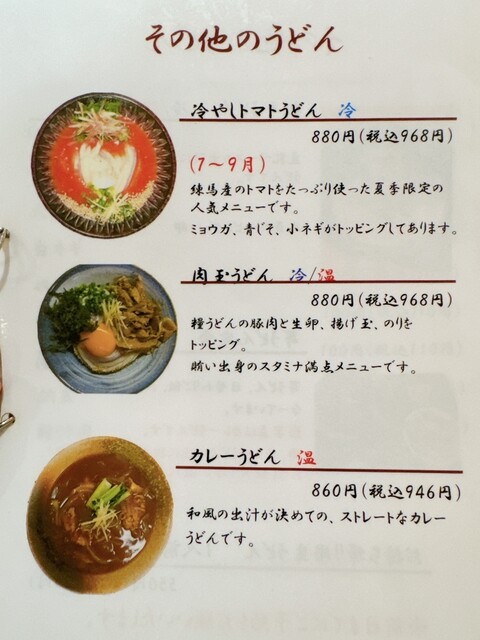 その他のうどん
冷やしトマトうどん 冷
880円(税込968円)
(7〜9月)
練馬産のトマトをたっぷり使った夏季限定の
人気メニューです。
ミョウガ、青じそ、小ネギがトッピングしてあります。
肉玉うどん 冷/温
880円(税込968円)
糧うどんの豚肉と生卵、揚げ玉、のりを
トッピング。
賄い出身のスタミナ満点メニューです。
カレーうどん 温
860円(税込946円)
和風の出汁が決めての、ストレートなカレー
うどんです。